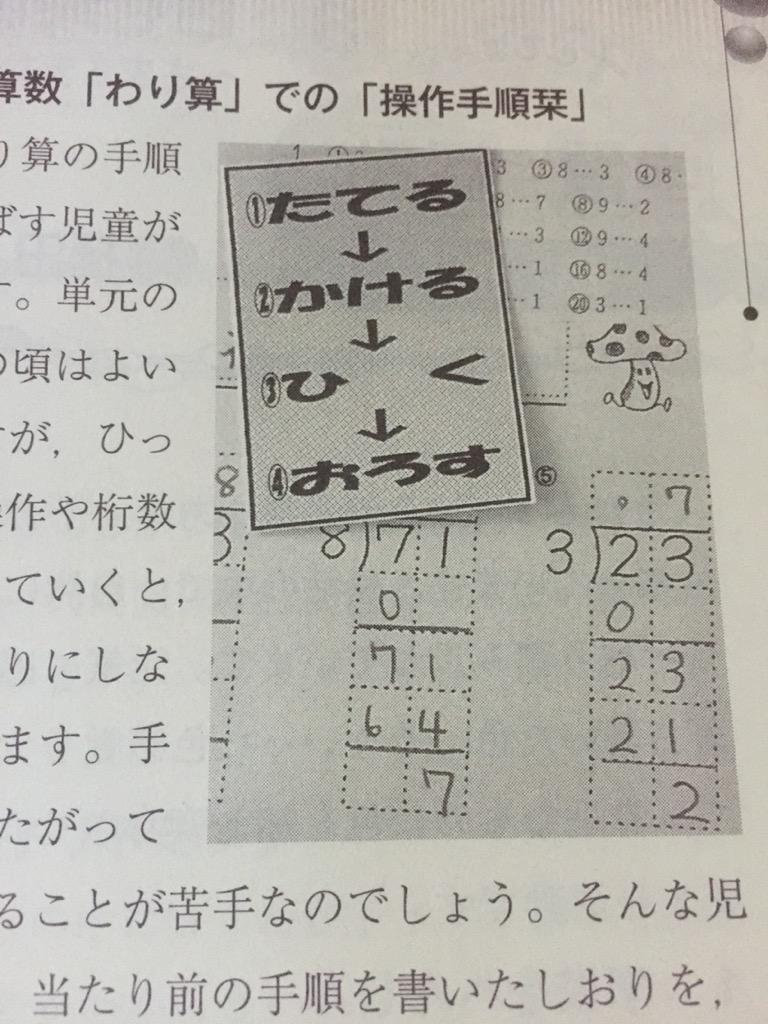 算数「わり算」での「操作手順栞」
り算の手順
ばす児童が
す。単元の
の頃はよい
すが，ひっ
操作や桁数
ていくと，
りにしな
ます。手
たがって
ることが苦手なのでしょう。そんな児
当たり前の手順を書いたしおりを，
①たてる
↓
②かける
↓
③ひく
↓
④おろす
3 ③8…3 ④8
8…7 ⑧9…2
…3 ⑫9…4
…1 ⑯8…4
…1 ⑳3…1
8
3
8)71
0
71
64
7
⑤
0 7
3)23
0
23
21
2